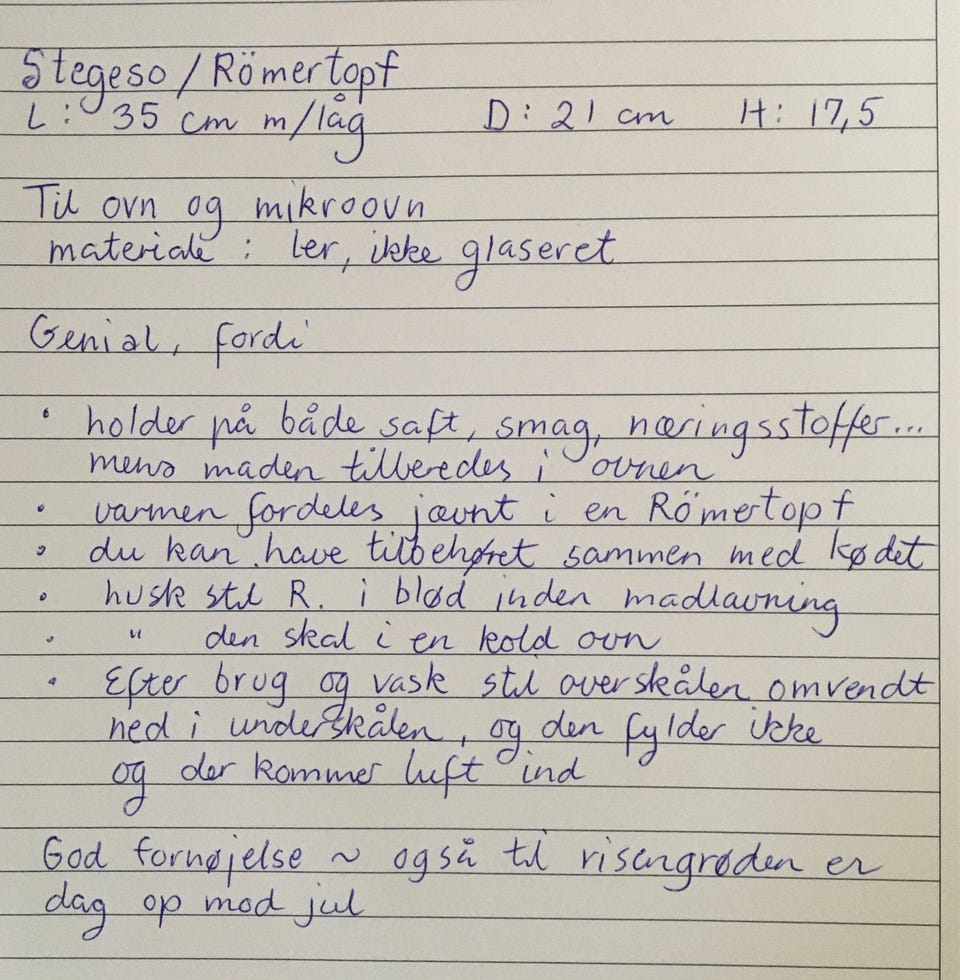 Stegeso / Römertopf
L: 35 cm m/låg D: 21 cm H: 17,5
Til ovn og mikroovn
materiale : ler, ikke glaseret
Genial, fordi
• holder på både saft, smag, næringsstoffer...
mens maden tilberedes i ovnen
• varmen fordeles jævnt i en Römertopf
• du kan have tilbehøret sammen med kødet
• husk stil R. i blød inden madlavning
• " den skal i en kold ovn
• Efter brug og vask stil overskålen omvendt
ned i underskålen, og den fylder ikke
og der kommer luft ind
God fornøjelse ~ også til risengrøden er
dag op mod jul